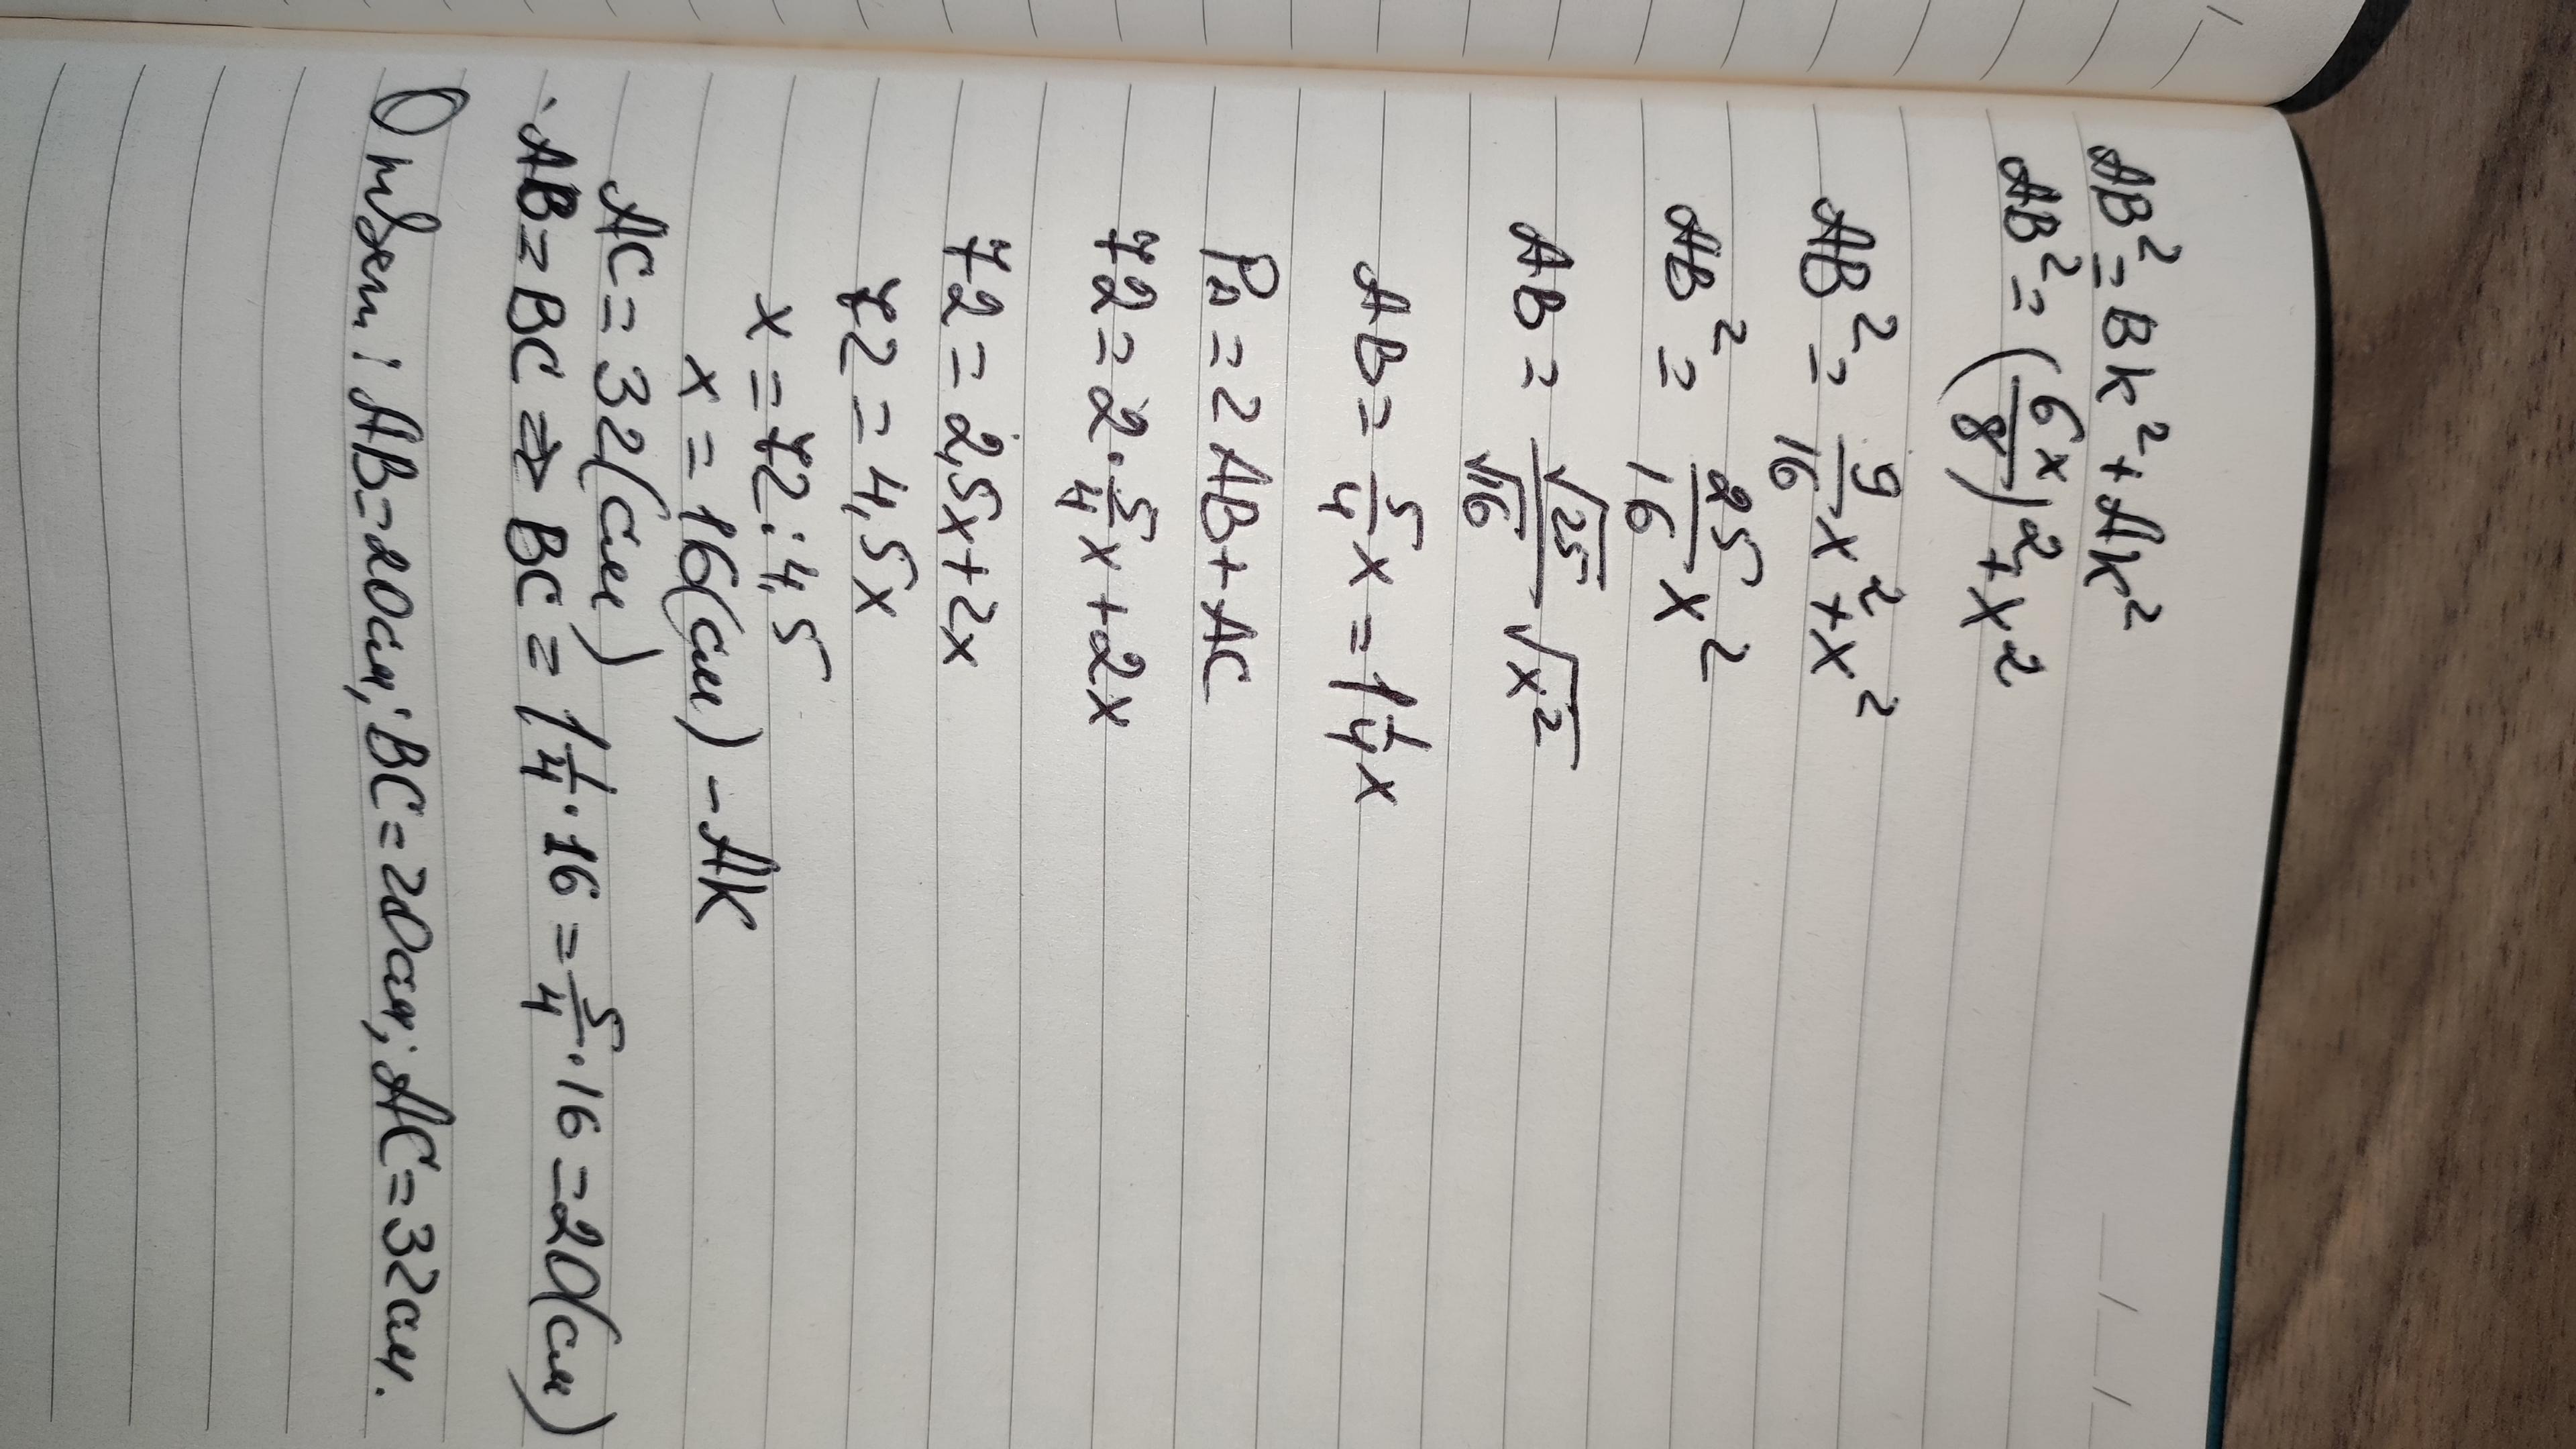 AB² = BK² + AK²
AB² = (6x/8)² + x²
AB² = 9/16 x² + x²
AB² = 25/16 x²
AB = √25/√16 √x²
AB = 5/4 x = 1 1/4 x
P△ = 2AB + AC
72 = 2 · 5/4 x + 2x
72 = 2,5x + 2x
72 = 4,5x
x = 72 : 4,5
x = 16 (см) – AK
AC = 32 (см)
AB = BC ⇒ BC = 1 1/4 · 16 = 5/4 · 16 = 20 (см)
Ответ: AB = 20см; BC = 20см; AC = 32см.